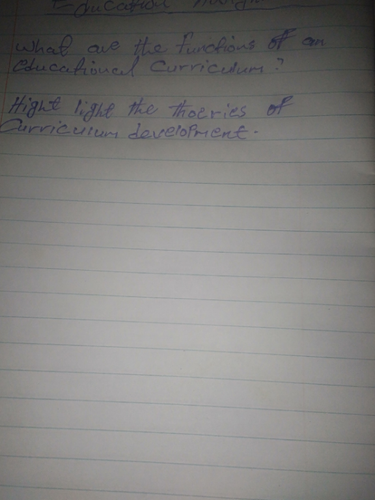 Education
What are the functions of an
educational Curriculum?
Hight light the thoeries of
Curriculum development.